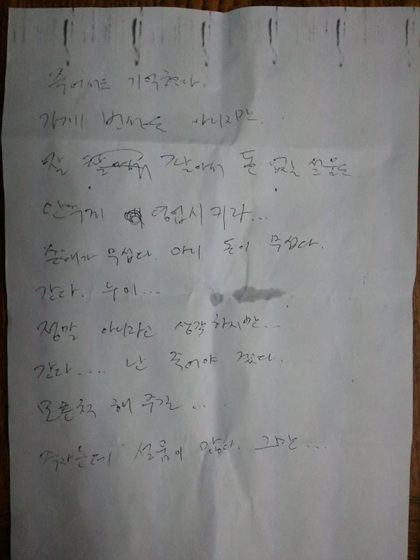 죽어서도 기억한다.
가게 번창은 아니지만.
잘 살아서 돈 없는 설움은
안 영업시키라...
손해가 무섭다. 아니 돈이 무섭다.
간다. 누이...
정말 아니라고 생각하지만...
간다.... 난 죽어야 겠다.
모른척 해 주길...
설움이 많다. 그만...